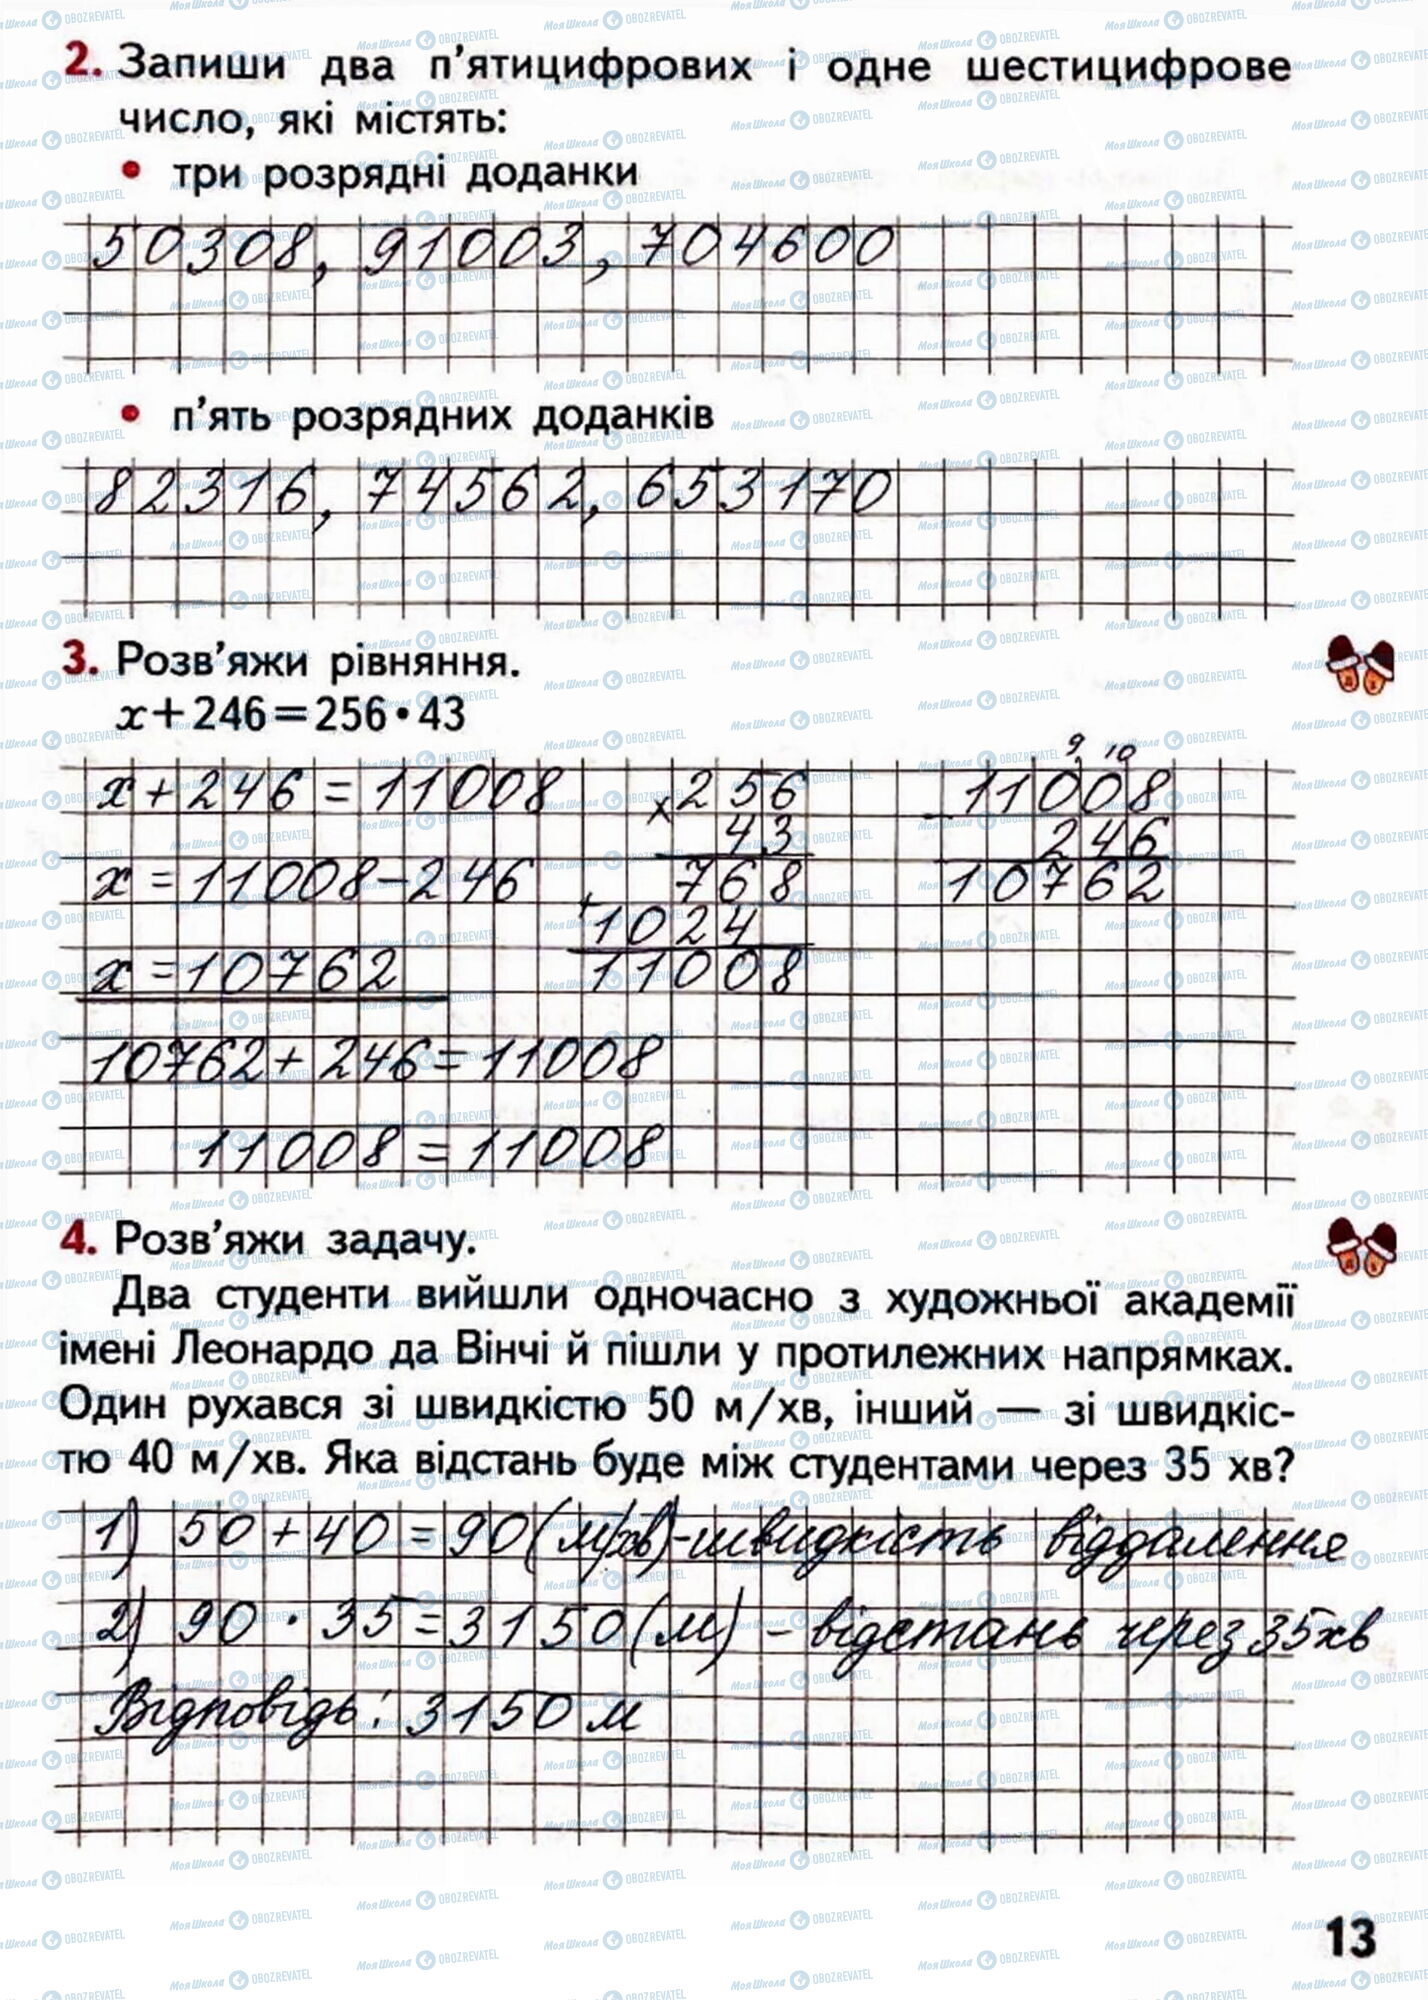 2. Запиши два п'ятицифрових і одне шестицифрове
число, які містять:
• три розрядні доданки
50308, 91003, 704600
• п'ять розрядних доданків
82316, 74562, 653170
3. Розв'яжи рівняння.
x+246=256•43
x+246=11008
x=11008-246
x=10762
10762+246=11008
11008=11008
×256
43
768
+1024
11008
9 10
-11008
246
10762
4. Розв'яжи задачу.
Два студенти вийшли одночасно з художньої академії
імені Леонардо да Вінчі й пішли у протилежних напрямках.
Один рухався зі швидкістю 50 м/хв, інший — зі швидкіс-
тю 40 м/хв. Яка відстань буде між студентами через 35 хв?
1) 50+40=90(м/хв)-швидкість віддалення
2) 90·35=3150(м)-відстань через 35хв
Відповідь: 3150 м
13
МояШкола OBOZREVATEL